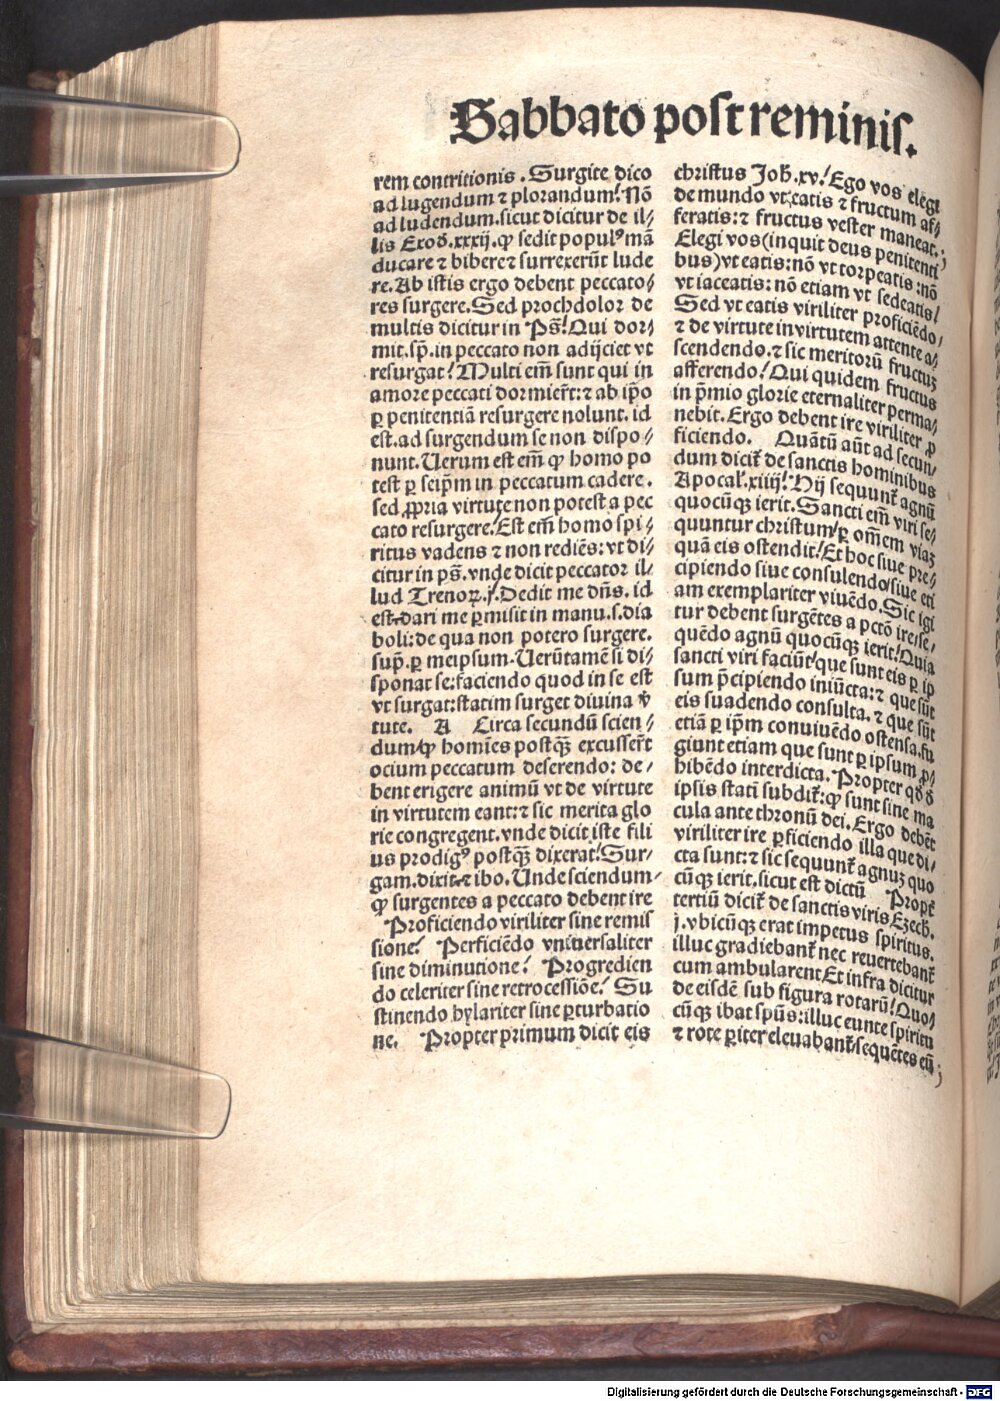 Sabbato post reminis.
rem contritionis . Surgite dico
ad lugendum ⁊ plorandum! Nō
ad ludendum. sicut dicitur de il⸗
lis Exod̄. xxxij. ꝙ sedit populꝰ mā
ducare ⁊ bibere ⁊ surrexerūt lude
re. Ab istis ergo debent peccato⸗
res surgere. Sed prochdolor de
multis dicitur in Ps̄! Qui dor⸗
mit. sp̄. in peccato non adijciet vt
resurgat! Multi em̄ sunt qui in
amore peccati dormier̄t: ⁊ ab ip̄o
ꝑ penitentiā resurgere nolunt. id
est. ad surgendum se non dispo⸗
nunt. Uerum est em̄ ꝙ homo po
test ꝑ seip̄m in peccatum cadere .
sed ꝓpria virtute non potest a pec
cato resurgere. Est em̄ homo spi⸗
ritus vadens ⁊ non rediēs: vt di⸗
citur in ps̄. vnde dicit peccator il⸗
lud Trenoꝝ. j. Dedit me dn̄s. id
est. dari me ꝑmisit in manu. s. dia
boli: de qua non potero surgere.
sup̄. ꝑ meipsum. Uerūtamē si di⸗
sponat se: faciendo quod in se est
vt surgat: statim surget diuina v̄
tute. A Circa secundū scien⸗
dum/ ꝙ homīes postqᷓꝫ excusser̄t
ocium peccatum deserendo: de⸗
bent erigere animū vt de virtute
in virtutem eant: ⁊ sic merita glo
rie congregent. vnde dicit iste fili
us prodigꝰ postqᷓꝫ dixerat! Sur⸗
gam. dixit ⁊ ibo. Unde sciendum⸗
ꝙ surgentes a peccato debent ire
Proficiendo viriliter sine remis
sione! Perficiēdo vniuersaliter
sine diminutione! Progredien
do celeriter sine retrocessiōe! Su
stinendo hylariter sine ꝑturbatio
ne. Propter primum dicit eis
christus Joh̄. xv.! Ego vos elegi
de mundo vt eatis ⁊ fructum af⸗
feratis: ⁊ fructus vester maneat.
Elegi vos (inquit deus penitenti
bus) vt eatis: nō vt torpeatis: nō
vt iaceatis: nō etiam vt sedeatis/
Sed vt eatis viriliter proficiēdo/
⁊ de virtute in virtutem attente a⸗
scendendo. ⁊ sic meritorū fructuꝫ
afferendo! Qui quidem fructus
in p̄mio glorie eternaliter perma⸗
nebit. Ergo debent ire viriliter ꝓ
ficiendo. Quātū aūt ad secun⸗
dum dicit̄ de sanctis hominibus
Apocal̄. xiiij! Hij sequunt̄ agnū
quocūqꝫ ierit. Sancti em̄ viri se⸗
quuntur christum/ ꝑ om̄em viaꝫ
quā eis ostendit! Et hoc siue pre⸗
cipiendo siue consulendo/ siue eti
am exemplariter viuēdo. Sic igi
tur debent surgētes a pctō ire/ se⸗
quēdo agnū quocūqꝫ ierit! Quia
sancti viri faciūt/ que sunt eis ꝑ ip
sum p̄cipiendo iniūcta: ⁊ que sūt
eis suadendo consulta. ⁊ que sūt
etiā ꝑ ip̄m conuiuēdo ostensa. fu
giunt etiam que sunt ꝑ ipsum ꝓ⸗
hibēdo interdicta. Propter qd̄ d̄
ipsis statī subdit̄: ꝙ sunt sine ma
cula ante thronū dei. Ergo debēt
viriliter ire ꝑficiendo illa que di⸗
cta sunt: ⁊ sic sequunt̄ agnuꝫ quo
cūqꝫ ierit. sicut est dictū Propt̄
tertiū dicit̄ de sanctis viris Ezech̄.
j. vbicūqꝫ erat impetus spiritus.
illuc gradiebant̄ nec reuertebant̄
cum ambularent Et infra dicitur
de eisdē sub figura rotarū! Quo⸗
cūqꝫ ibat spūs: illuc eunte spiritu
⁊ rote ꝑiter eleuabant̄/ sequētes eū
Digitalisierung gefördert durch die Deutsche Forschungsgemeinschaft - DFG